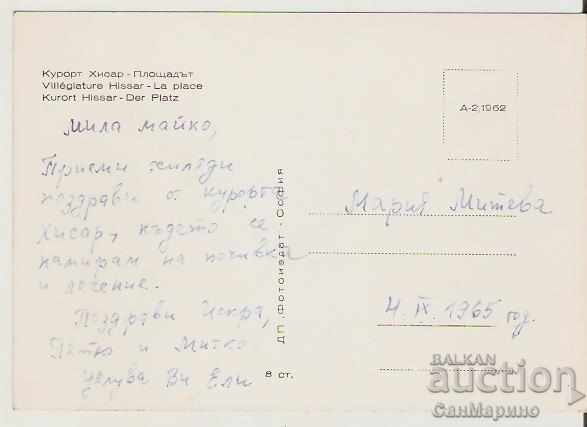 Курорт Хисар - Площадът
Villégiature Hissar - La place
Kurort Hissar - Der Platz
Мила майко,
Приеми хиляди
поздрави от курорта
Хисар, където се
намирам на почивка
и лечение.
Поздрави Искра,
Петьо и Митко
Целува Ви Ели
ДП „Фотоиздат" - София
8 ст.
А-2,1962
Мария Митева
4. IX. 1965 год.
BALKAN
auction
СанМарино